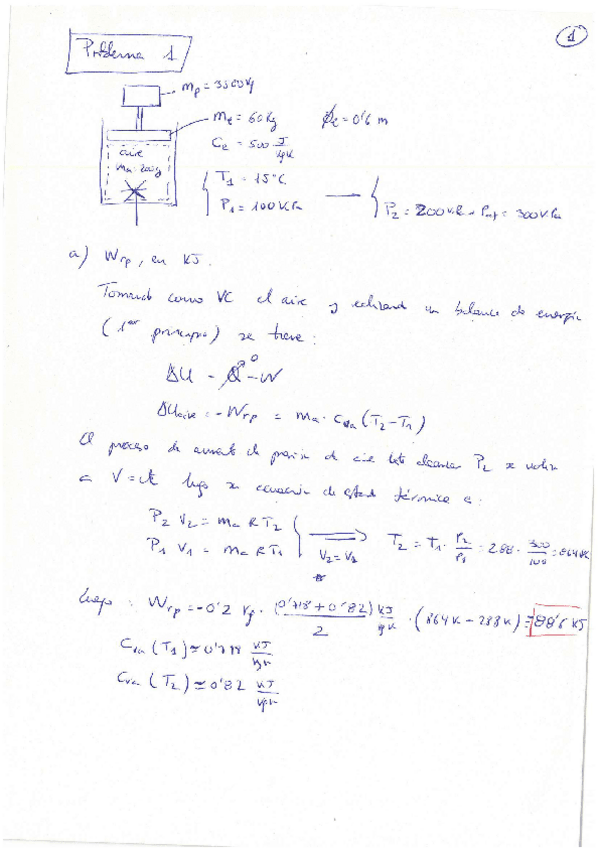 1
Problema 1
mp = 3500 Kg
me = 60 Kg
Øe = 0'6 m
Ce = 500 J/KgK
aire
ma = 200 g
T1 = 15°C
P1 = 100 KPa
P2 = 200 KPa + Pref = 300 KPa
a) Wrp, en KJ.
Tomando como VC el aire y realizando un balance de energía
(1er principio) se tiene:
ΔU = Q - W
0
ΔUaire = -Wrp = ma · Cva (T2 - T1)
El proceso de aumento de presión de aire hasta alcanzar P2 se realiza
a V = cte luego su ecuación de estado térmica es:
P2 V2 = ma R T2
P1 V1 = ma R T1
V2 = V1
T2 = T1 · P2/P1 = 288 · 300/100 = 864K
luego: Wrp = -0'2 Kg · (0'718 + 0'82)/2 KJ/KgK · (864K - 288K) = -88'6 KJ
Cva (T1) ≃ 0'718 KJ/KgK
Cva (T2) ≃ 0'82 KJ/KgK